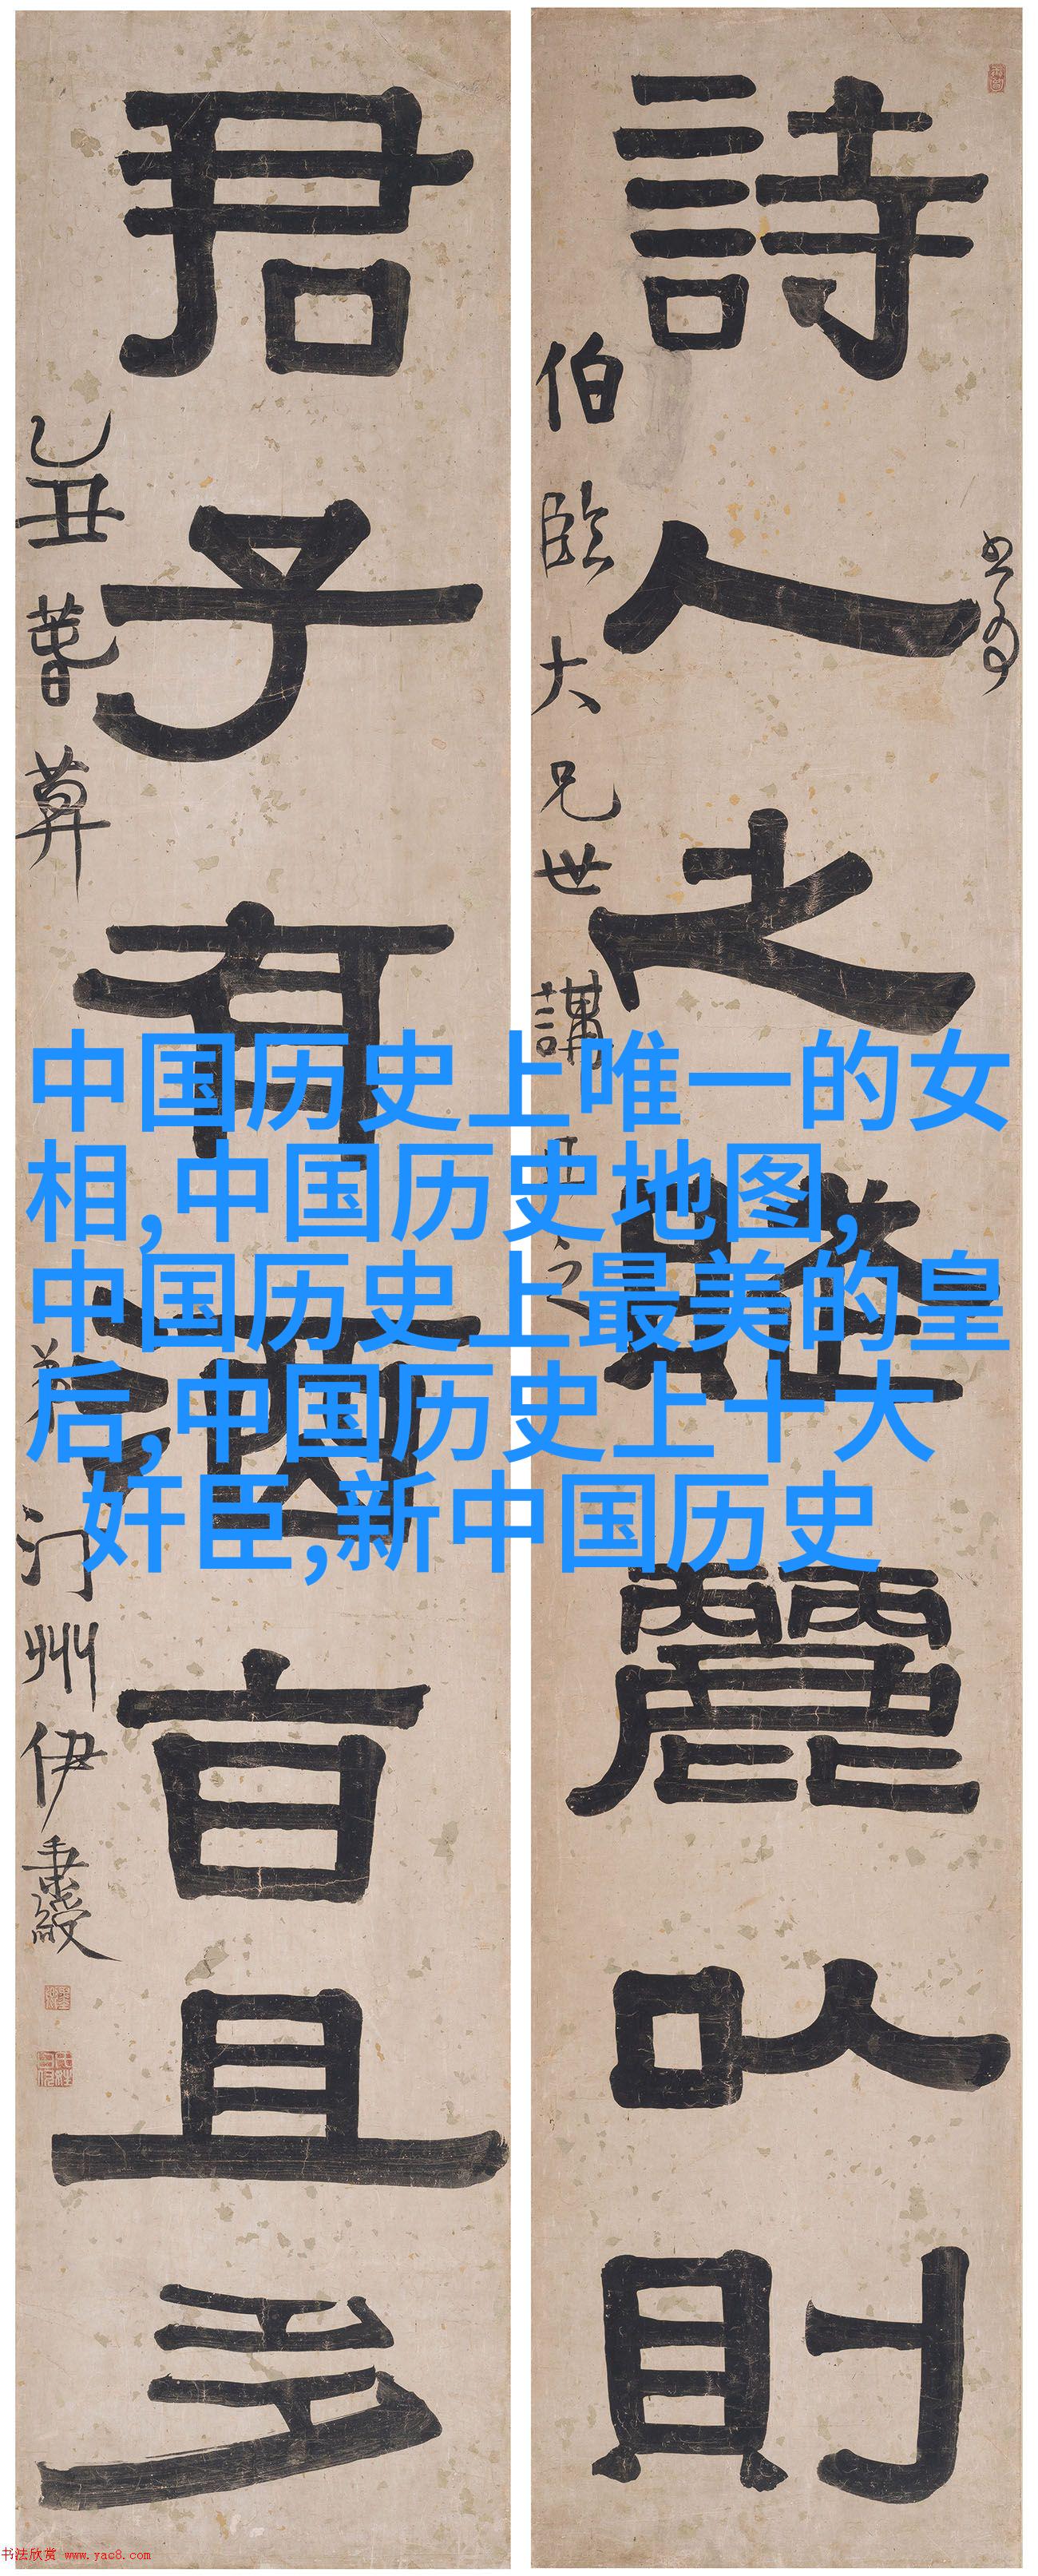 詩人之賦麗以則
伯臨大兄世講正之
君子有酒旨且多
乙丑
弟汀州伊秉綬
中国历史上唯一的女
相,中国历史地图,
中国历史上最美的皇
后,中国历史上十大
奸臣,新中国历史
书法欣赏 www.yac8.com